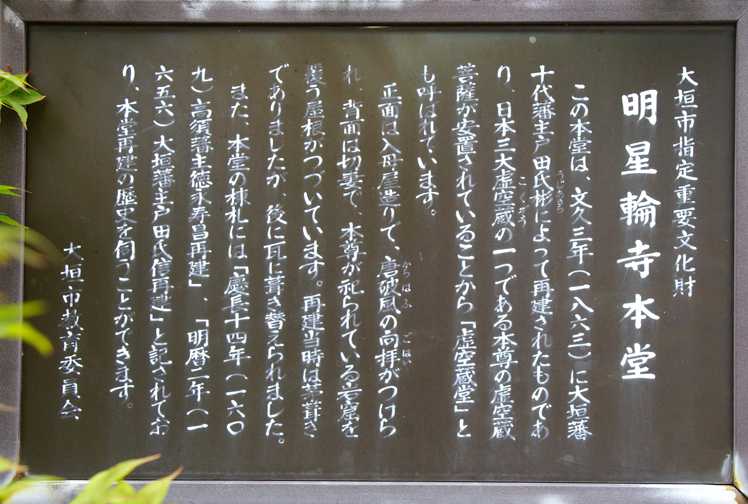 大垣市指定重要文化財
明星輪寺本堂
この本堂は、文久三年(一八六三)に大垣藩
十代藩主戸田氏彬によって再建されたものであ
こくうぞう
り、日本三大虚空蔵の一つである本尊の虚空蔵
菩薩が安置されていることから「虚空蔵堂」と
も呼ばれています。
からはふ ごはい
正面は入母屋造りで、唐破風の向拝がつけら
れ、背面は切妻で、本尊が祀られている岩窟を
覆う屋根がつづいています。再建当時は茅葺き
でありましたが、後に瓦に葺き替えられました。
また、本堂の棟札には「慶長十四年(一六〇
九)高須藩主徳永寿昌再建」、「明暦二年(一
六五六)大垣藩主戸田氏信再建」と記されてお
り、本堂再建の歴史を伺うことができます。
大垣市教育委員会